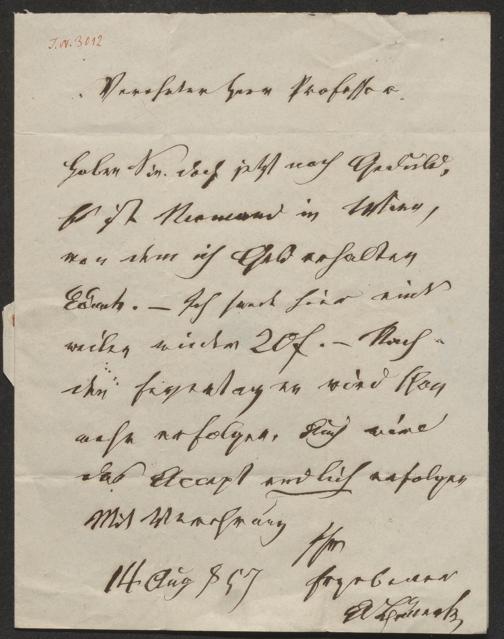 I.N. 3012
Verehrter Herr Professor
Haben Sie doch jetzt noch Geduld,
Es ist Niemand in Wien,
von dem ich Geld erhalten
könnte. – Ich sende hier einst
weilen wieder 20f. – Nach
den Feyertagen wird schon
mehr erfolgen. Auch wird
das Accept endlich erfolgen
Mit Verehrung
Ihr
14 Aug 857 Ergebener